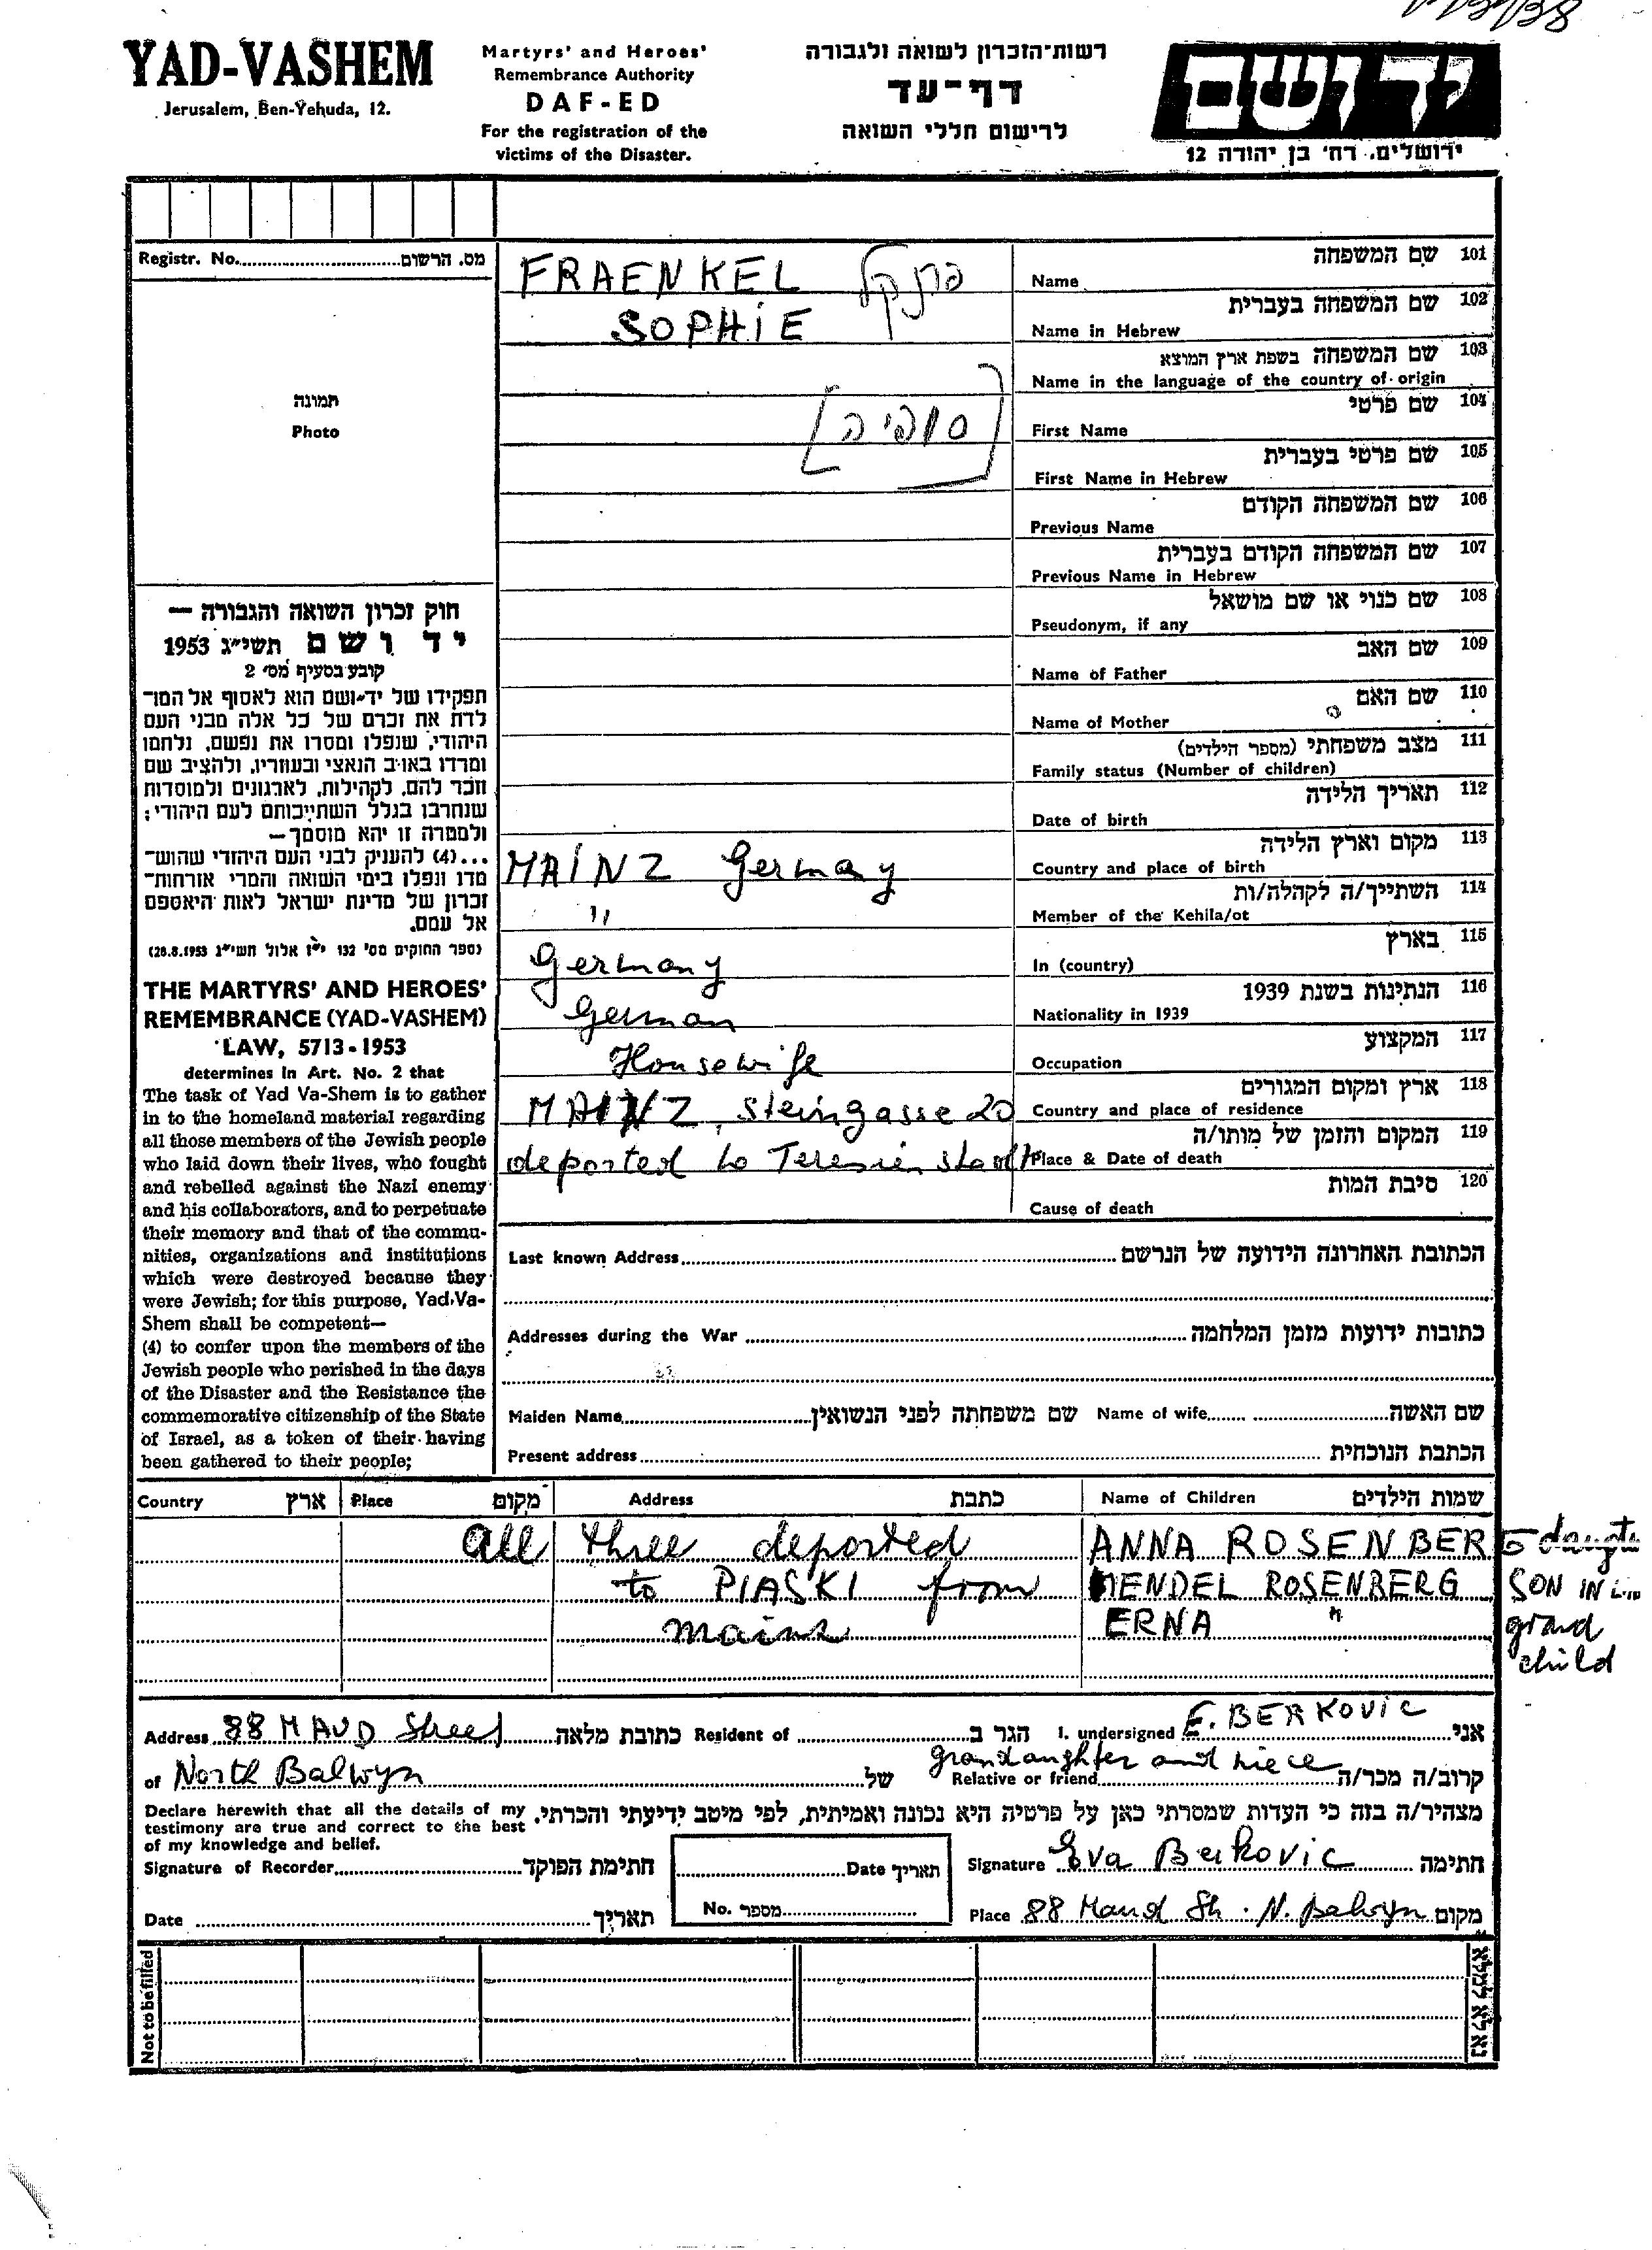 YAD-VASHEM
Jerusalem, Ben-Yehuda, 12.
Martyrs' and Heroes'
Remembrance Authority
DAF-ED
For the registration of the
victims of the Disaster.
רשות־הזכרון לשואה ולגבורה
דף־עד
לרישום חללי השואה
ידושם
ירושלים, רח' בן יהודה 12
Registr. No. מס. הרשום
תמונה
Photo
חוק זכרון השואה והגבורה —
יד ושם תשי״ג 1953
קובע בסעיף מס' 2
תפקידו של יד־ושם הוא לאסוף אל המו־
לדת את זכרם של כל אלה מבני העם
היהודי, שנפלו ומסרו את נפשם, נלחמו
ומרדו באויב הנאצי ובעוזריו, ולהציב שם
וזכר להם, לקהילות, לארגונים ולמוסדות
שנחרבו בגלל השתייכותם לעם היהודי;
ולמטרה זו יהא מוסמך —
...(4) להעניק לבני העם היהודי שהוש־
מדו ונפלו בימי השואה והמרי אזרחות־
זכרון של מדינת ישראל לאות היאספם
אל עמם.
(ספר החוקים מס' 132 י״ז אלול תשי״ג 28.8.1953)
THE MARTYRS' AND HEROES'
REMEMBRANCE (YAD-VASHEM)
LAW, 5713-1953
determines in Art. No. 2 that
The task of Yad Va-Shem is to gather
in to the homeland material regarding
all those members of the Jewish people
who laid down their lives, who fought
and rebelled against the Nazi enemy
and his collaborators, and to perpetuate
their memory and that of the commu-
nities, organizations and institutions
which were destroyed because they
were Jewish; for this purpose, Yad-Va-
Shem shall be competent—
(4) to confer upon the members of the
Jewish people who perished in the days
of the Disaster and the Resistance the
commemorative citizenship of the State
of Israel, as a token of their having
been gathered to their people;
FRAENKEL פרנקל שם המשפחה 101
Name
SOPHIE שם המשפחה בעברית 102
Name in Hebrew
שם המשפחה בשפת ארץ המוצא 103
Name in the language of the country of origin
[סופיה] שם פרטי 104
First Name
שם פרטי בעברית 105
First Name in Hebrew
שם המשפחה הקודם 106
Previous Name
שם המשפחה הקודם בעברית 107
Previous Name in Hebrew
שם כנוי או שם מושאל 108
Pseudonym, if any
שם האב 109
Name of Father
שם האם 110
Name of Mother
מצב משפחתי (מספר הילדים) 111
Family status (Number of children)
תאריך הלידה 112
Date of birth
MAINZ Germay מקום וארץ הלידה 113
Country and place of birth
" השתייך/ה לקהלה/ות 114
Member of the Kehila/ot
Germany בארץ 115
In (country)
German הנתינות בשנת 1939 116
Nationality in 1939
Housewife המקצוע 117
Occupation
MAINZ, Steingasse 20 ארץ ומקום המגורים 118
Country and place of residence
deported to Teresienstadt המקום והזמן של מותו/ה 119
Place & Date of death
סיבת המות 120
Cause of death
Last known Address הכתובת האחרונה הידועה של הנרשם
Addresses during the War כתובות ידועות מזמן המלחמה
Maiden Name שם משפחתה לפני הנשואין Name of wife שם האשה
Present address הכתבת הנוכחית
Country ארץ Place מקום Address כתבת Name of Children שמות הילדים
all three deported ANNA ROSENBERG
to PIASKI from MENDEL ROSENBERG SON IN
mainz ERNA " grand
child
Address 88 MAUD Street כתובת מלאה Resident of הגר ב I. undersigned E. BERKOVIC אני
of North Balwyn של Relative or friend grandaughter and niece קרוב/ה מכר/ה
Declare herewith that all the details of my
testimony are true and correct to the best
of my knowledge and belief.
מצהיר/ה בזה כי העדות שמסרתי כאן על פרטיה היא נכונה ואמיתית, לפי מיטב ידיעתי והכרתי.
Signature of Recorder חתימת הפוקד Date תאריך Signature Eva Berkovic חתימה
Date תאריך No. מספר Place 88 Maud St. N. Balwyn מקום
Not to be filled
נא לא למלא